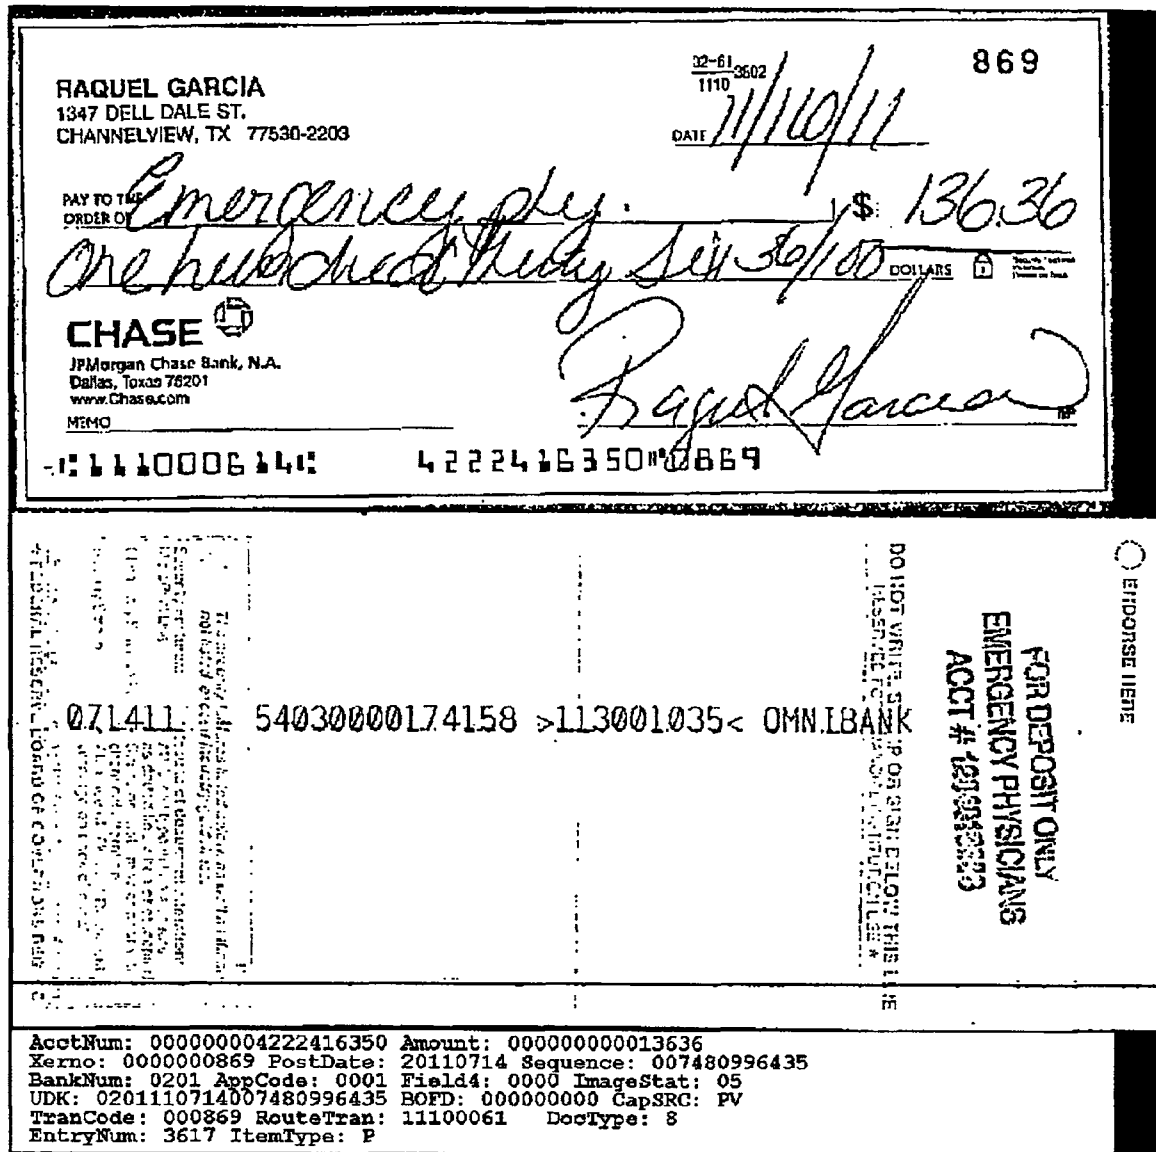 869
32-61 3502
1110
RAQUEL GARCIA
1347 DELL DALE ST.
CHANNELVIEW, TX 77530-2203
DATE 11/10/11
PAY TO THE
ORDER OF Emergency phy. $ 136.36
One hundred thirty six 36/100 DOLLARS
CHASE
JPMorgan Chase Bank, N.A.
Dallas, Texas 75201
www.Chase.com
Raquel Garcia
MEMO
MP
111000614 4222416350 0869
ENDORSE HERE
FOR DEPOSIT ONLY
EMERGENCY PHYSICIANS
ACCT #
DO NOT WRITE, STAMP OR SIGN BELOW THIS LINE
071411 54030000174158 >113001035< OMNIBANK
AcctNum: 000000004222416350 Amount: 000000000013636
Xerno: 0000000869 PostDate: 20110714 Sequence: 007480996435
BankNum: 0201 AppCode: 0001 Field4: 0000 ImageStat: 05
UDK: 0201110714007480996435 BOFD: 000000000 CapSRC: PV
TranCode: 000869 RouteTran: 11100061 DocType: 8
EntryNum: 3617 ItemType: P